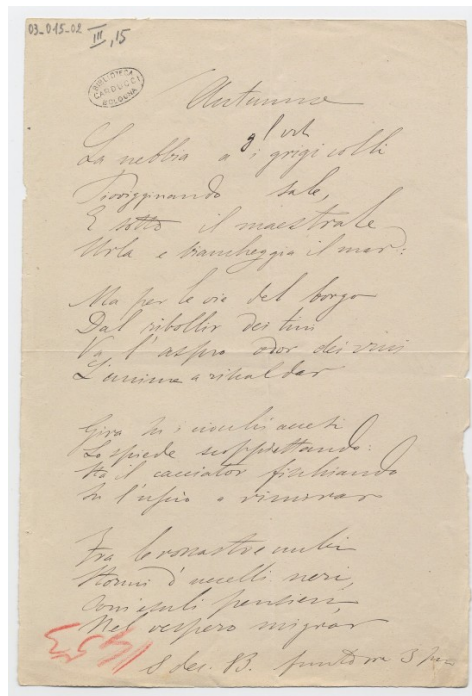 03-015-02
III, 15
BIBLIOTECA
CARDUCCI
BOLOGNA
Autunno
gl' irti
La nebbia a i grigi colli
Piovigginando sale,
E sotto il maestrale
Urla e biancheggia il mar:
Ma per le vie del borgo
Dal ribollir dei tini
Va l'aspro odor dei vini
L'anima a rallegrar
Gira su i ceppi accesi
Lo spiede scoppiettando:
Sta il cacciator fischiando
Su l'uscio a rimirar
Tra le rossastre nubi
Stormi d'uccelli neri,
Com'esuli pensieri
Nel vespero migrar
8 dec. 83. 3